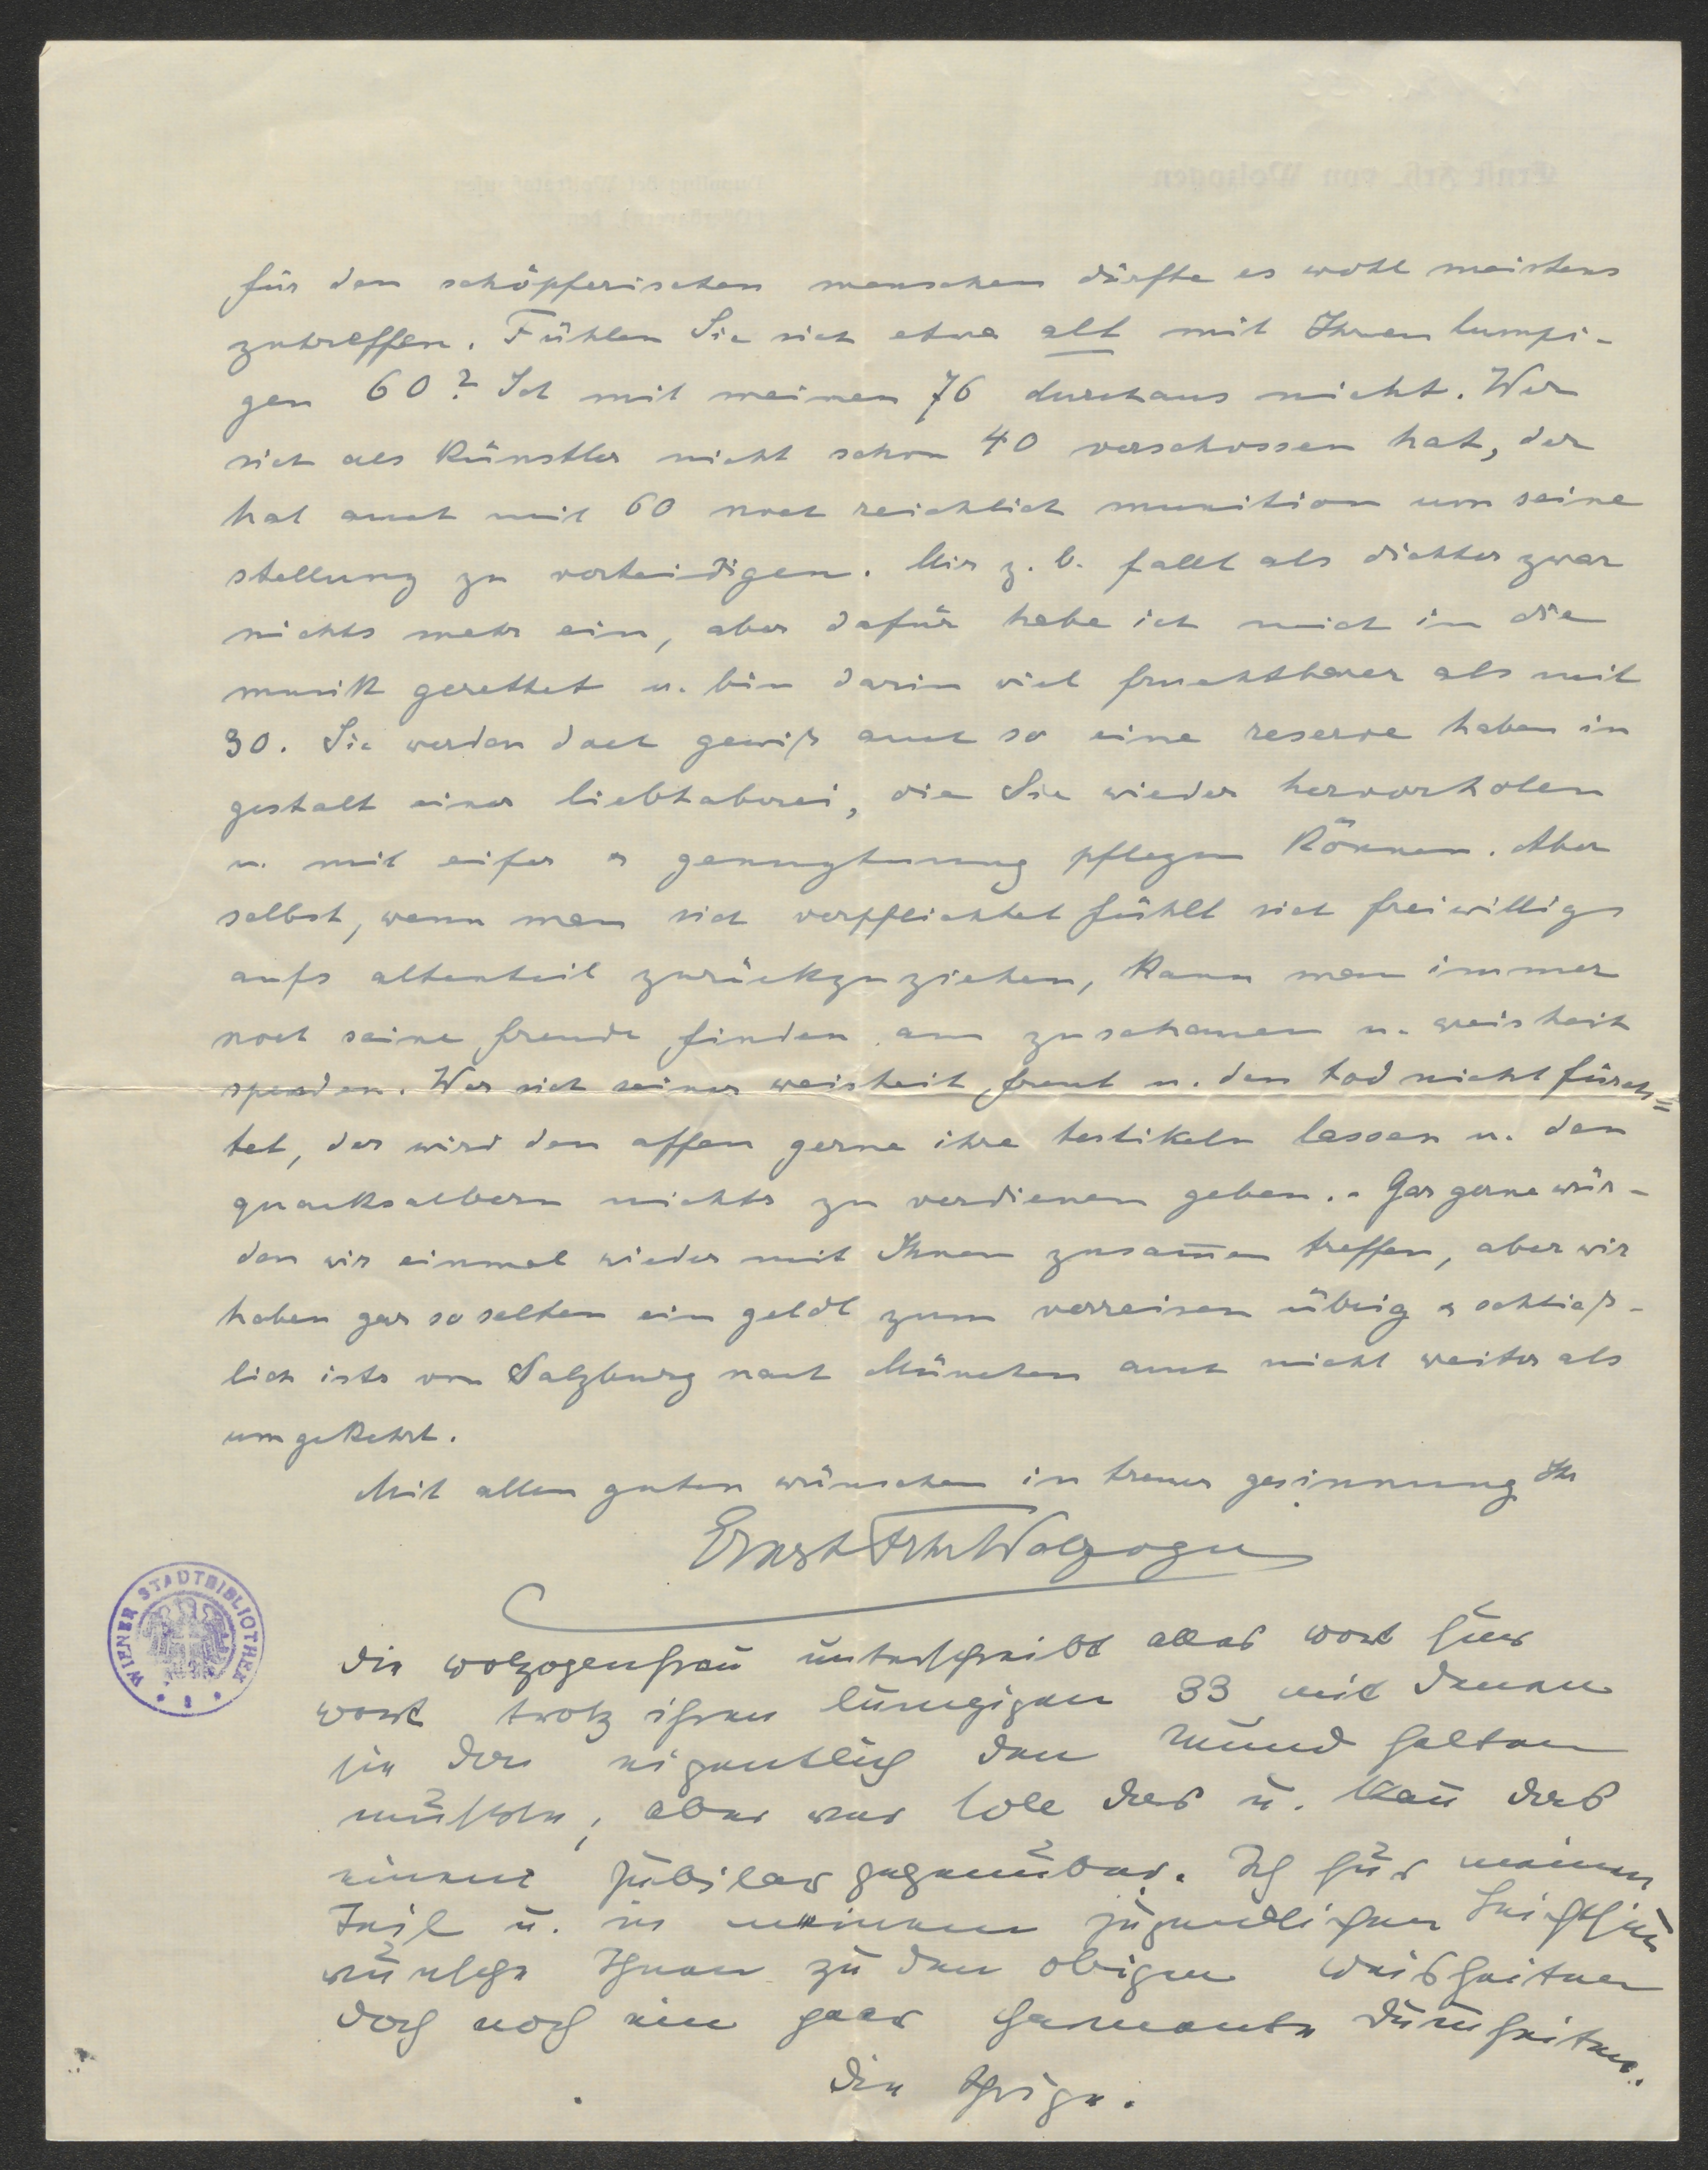 für den schöpferischen menschen dürfte es wohl meistens
zutreffen. Fühlen Sie sich etwa alt mit Ihren lumpi-
gen 60? Ich mit meinen 76 durchaus nicht. Wer
sich als künstler nicht schon 40 verschossen hat, der
hat auch mit 60 noch reichlich munition um seine
stellung zu verteidigen. Mir z. b. fällt als dichter zwar
nichts mehr ein, aber dafür habe ich mich in die
musik gerettet u. bin darin viel fruchtbarer als mit
30. Sie werden doch gewiß auch so eine reserve haben in
gestalt einer liebhaberei, die Sie wieder hervorholen
u. mit eifer u genugtuung pflegen können. Aber
selbst, wenn man sich verpflichtet fühlt sich freiwillig
aufs altenteil zurückzuziehen, kann man immer
noch seine freude finden am zuschauen u. weisheit
spenden. Wer sich seiner weisheit freut u. den tod nicht fürch=
tet, der wird den affen gerne ihre testikeln lassen u. den
quacksalbern nichts zu verdienen geben. - Gar gerne wür-
den wir einmal wieder mit Ihnen zusam̅en treffen, aber wir
haben gar so selten ein geldl zum verreisen übrig u schließ-
lich ists von Salzburg nach München auch nicht weiter als
umgekehrt.
Mit allen guten wünschen in treuer gesinnung Ihr
Ernst Frhr Wolzogen
WIENER STADTBIBLIOTHEK
die wolzogenfrau unterschreibt alles wort für
wort trotz ihren lumpigen 33 mit denen
sie da eigentlich den Mund halten
müßte, aber wer soll das u. kan̅ das
einem Jubilar gegenüber. Ich für meinen
Teil u. in meinem jugendlichen Leichtsin̅
wünsche Ihnen zu den obigen Weisheiten
doch noch ein paar charmante Dum̅heiten.
Die Ihrige.